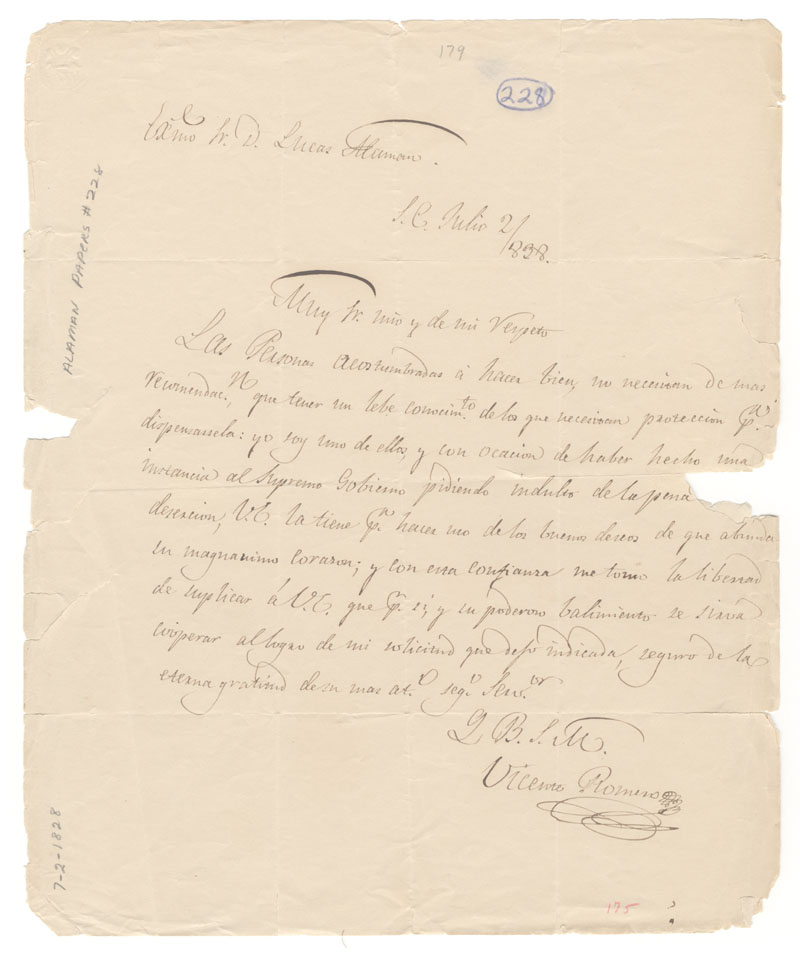 179
228
Exmo Sr. D. Lucas Alaman.
S. C. Julio 2/
838.
Muy Sr. mio y de mi respeto
Las Personas acostumbradas á hacer bien, no necesitan de mas
recomendac.n que tener un lebe conocim.to de los que necesitan protección p.a
dispensarsela: yo soy uno de ellos, y con ocacion de haber hecho una
instancia al Supremo Gobierno pidiendo indulto de la pena
desercion, V.E. la tiene p.a hacer uso de los buenos deseos de que abunda
su magnanimo corazon; y con esta confianza me tomo la libertad
de suplicar á V.E. que p.r si, y su poderoso balimiento se sirva
cooperar al logro de mi solicitud que dejo indicada, seguro de la
eterna gratitud de su mas at.o seg.o Serv.or
Q. B. S. M.
Vicente Romero
ALAMAN PAPERS # 228
7-2-1828
175